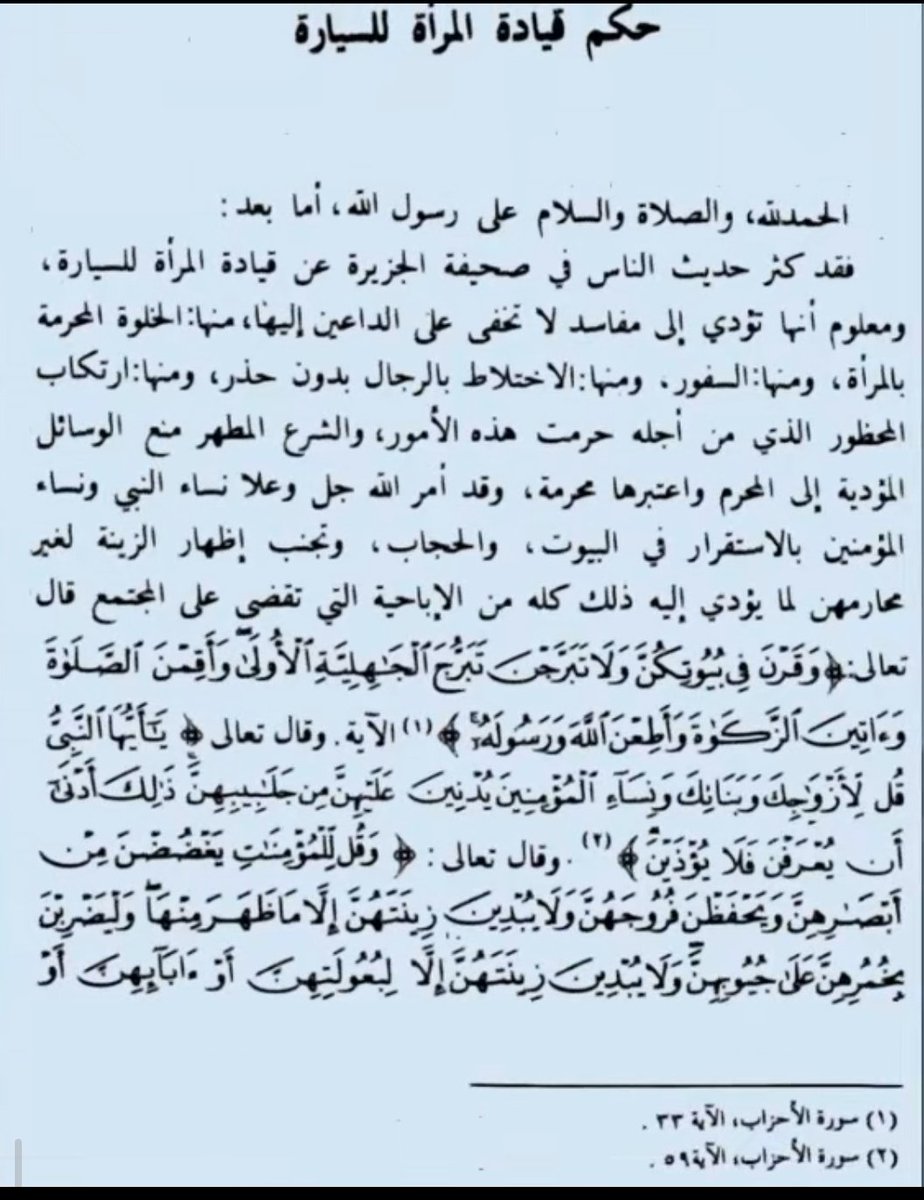 حكم قيادة المرأة للسيارة
الحمدلله، والصلاة والسلام على رسول الله، أما بعد:
فقد كثر حديث الناس في صحيفة الجزيرة عن قيادة المرأة للسيارة،
ومعلوم أنها تؤدي إلى مفاسد لا تخفى على الداعين إليها، منها: الخلوة المحرمة
بالمرأة، ومنها: السفور. ومنها: الاختلاط بالرجال بدون حذر، ومنها: ارتكاب
المحظور الذي من أجله حرمت هذه الأمور، والشرع المطهر منع الوسائل
المؤدية إلى المحرم واعتبرها محرمة، وقد أمر الله جل وعلا نساء النبي ونساء
المؤمنين بالاستقرار في البيوت، والحجاب، وتجنب إظهار الزينة لغير
محارمهن لما يؤدي إليه ذلك كله من الإباحية التي تقضي على المجتمع قال
تعالى: ﴿وَقَرْنَ فِي بُيُوتِكُنَّ وَلَا تَبَرَّجْنَ تَبَرُّجَ الْجَٰهِلِيَّةِ الْأُولَىٰ وَأَقِمْنَ الصَّلَوٰةَ
وَءَاتِينَ الزَّكَوٰةَ وَأَطِعْنَ اللَّهَ وَرَسُولَهُ﴾ (١) الآية. وقال تعالى ﴿يَٰٓأَيُّهَا النَّبِيُّ
قُل لِّأَزْوَٰجِكَ وَبَنَاتِكَ وَنِسَآءِ الْمُؤْمِنِينَ يُدْنِينَ عَلَيْهِنَّ مِن جَلَٰبِيبِهِنَّ ذَٰلِكَ أَدْنَىٰٓ
أَن يُعْرَفْنَ فَلَا يُؤْذَيْنَ﴾ (٢). وقال تعالى: ﴿وَقُل لِّلْمُؤْمِنَٰتِ يَغْضُضْنَ مِنْ
أَبْصَٰرِهِنَّ وَيَحْفَظْنَ فُرُوجَهُنَّ وَلَا يُبْدِينَ زِينَتَهُنَّ إِلَّا مَا ظَهَرَ مِنْهَا وَلْيَضْرِبْنَ
بِخُمُرِهِنَّ عَلَىٰ جُيُوبِهِنَّ وَلَا يُبْدِينَ زِينَتَهُنَّ إِلَّا لِبُعُولَتِهِنَّ أَوْ ءَابَآئِهِنَّ أَوْ
(١) سورة الأحزاب، الآية ٣٣.
(٢) سورة الأحزاب، الآية ٥٩.